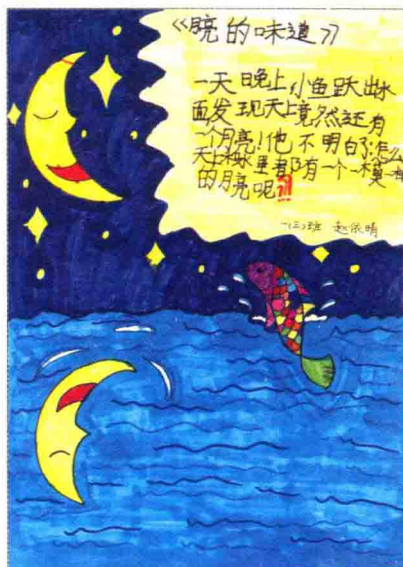 《月亮的味道》
一天晚上小鱼跃出水
面发现天上竟然还有
一个月亮!他不明白了:怎么
天上和水里都有一个一模一样
的月亮呢?!!
一(三)班 赵依晴